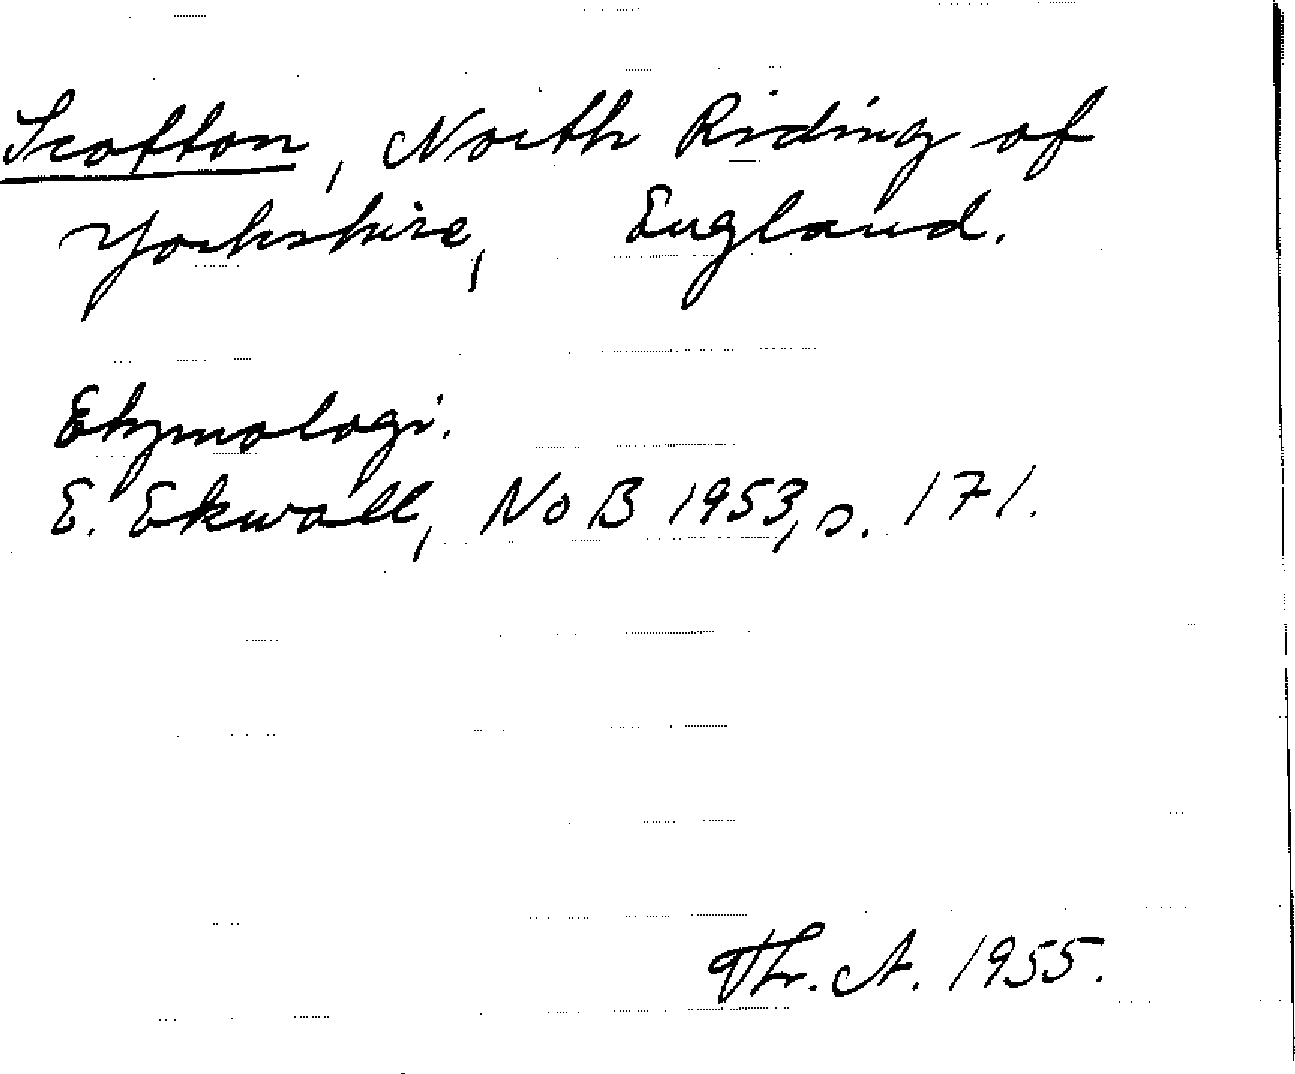 Scotton, North Riding of
Yorkshire, England.
Etymologi.
E. Ekwall, NoB 1953, s. 171.
Th. A. 1955.